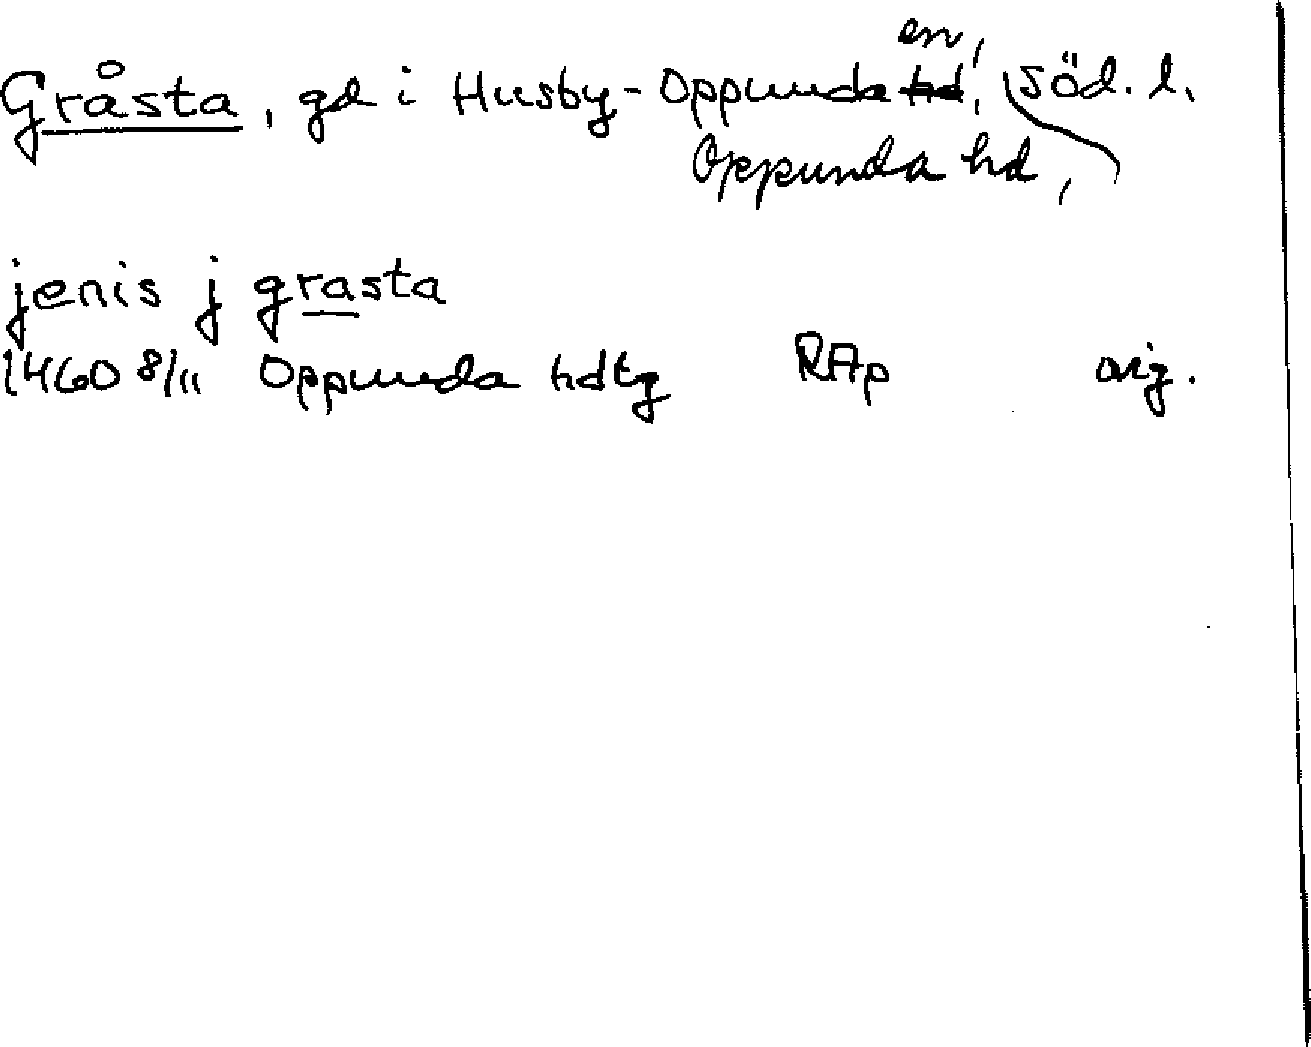 Gråsta, gd i Husby-Oppunda hd, en, söd. l.
Oppunda hd,
jenis j grasta
1460 8/11 Oppunda hdtg RAp orig.